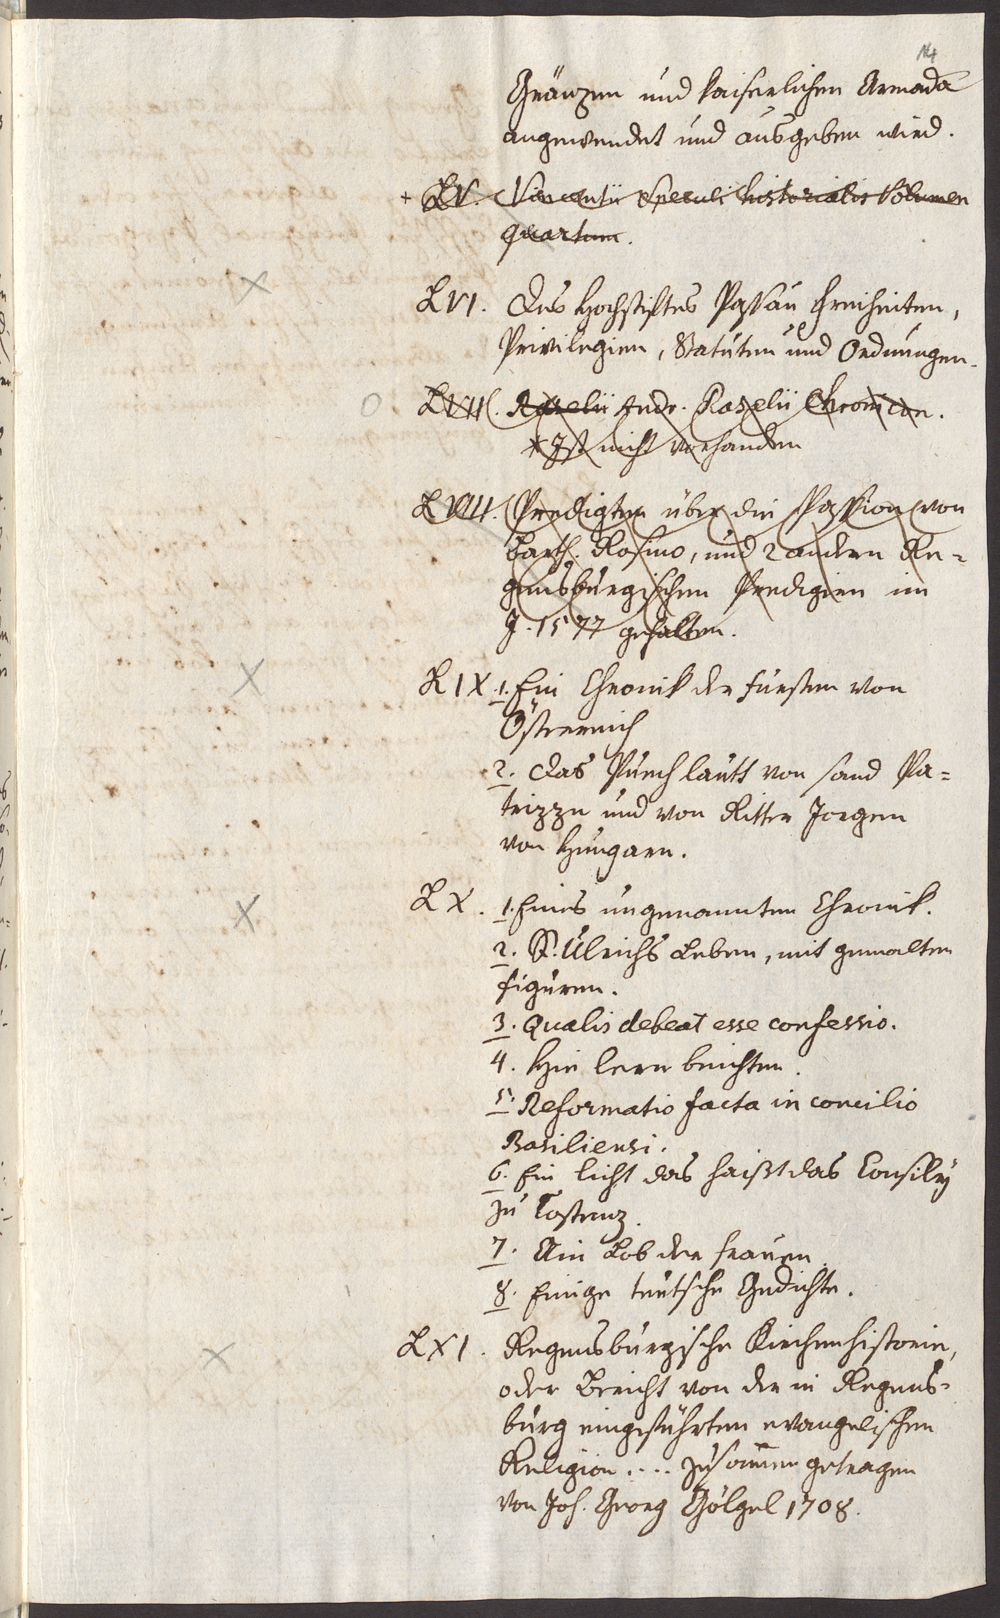 14
Gränzen und kaiserlichen Armada
angewendet und ausgeben wird.
+ LV. Vincentii Speculi historialis Volumen
quartum.
LVI. Des Hochstiftes Passau Freiheiten,
Privilegien, Statuten und Ordnungen.
LVII. Raselii Andr. Raselii Chronicon.
* Ist nicht vorhanden
LVIII. Predigten über die Passion von
Barth. Rosino, und 2 andern Re-
gensburgischen Predigern im
J. 1577 gehalten.
LIX. 1. Ein Chronik der Fürsten von
Österreich
2. Das Puech lautt von sand Pa-
trizzen und von Ritter Joergen
von Hungarn.
LX. 1. Eines ungenannten Chronik.
2. S. Ulrichs Leben, mit gemalten
Figuren.
3. Qualis debeat esse confessio.
4. Hie lern beichten.
5. Reformatio facta in concilio
Basiliensi.
6. Ein licht das haißt das Consily
zu Costenz.
7. Ain Lob der frauen.
8. Einige teutsche Gedichte.
LXI. Regensburgische Kirchenhistorie,
oder Bericht von der in Regens-
burg eingeführten evangelischen
Religion.... zusammen getragen
von Joh. Georg Gölgel 1708.